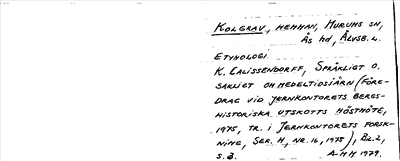 KOLGRAV, HEMMAN, MURUMS SN,
ÅS HD, ÄLVSB. L.
ETYMOLOGI
K. CALISSENDORFF, SPRÅKLIGT O.
SAKLIGT OM MEDELTIDSJÄRN (FÖRE-
DRAG VID JERNKONTORETS BERGS-
HISTORISKA UTSKOTTS HÖSTMÖTE,
1975, TR. I JERNKONTORETS FORSK-
NING, SER. H, NR. 14, 1975), BIL. 2,
S. 3. A-M H 1979.